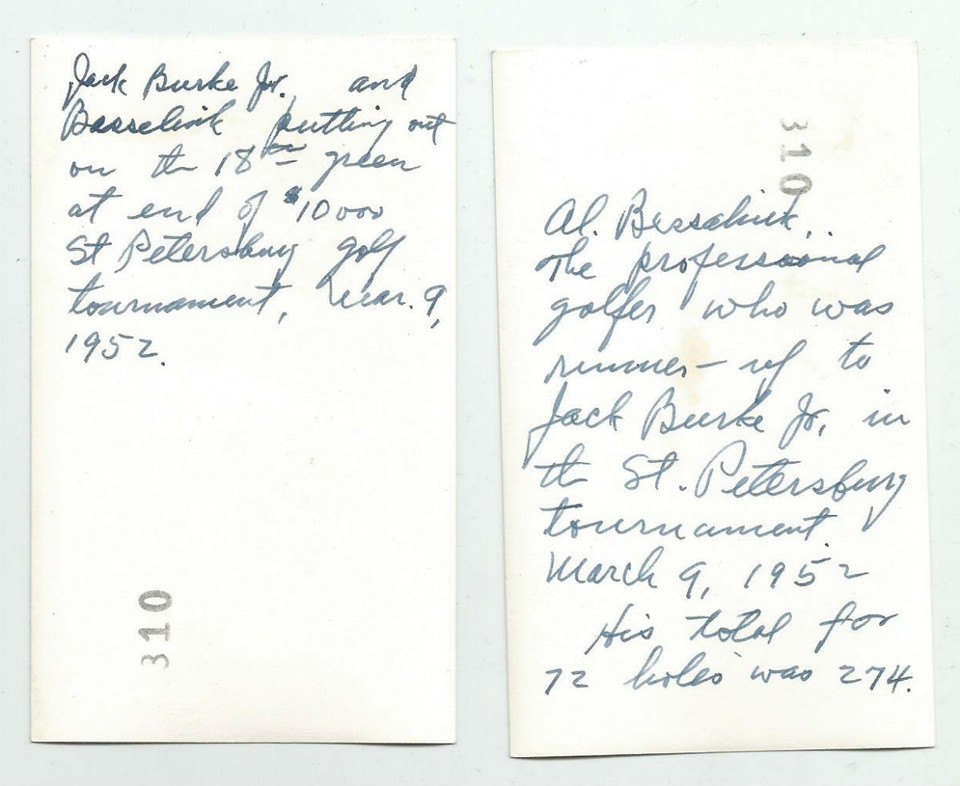 Jack Burke Jr. and
Besselink putting out
on the 18th green
at end of $10000
St Petersburg golf
tournament, Mar. 9,
1952.
310
310
Al. Besselink,
the professional
golfer who was
runner-up to
Jack Burke Jr. in
the St. Petersburg
tournament.
March 9, 1952
His total for
72 holes was 274.